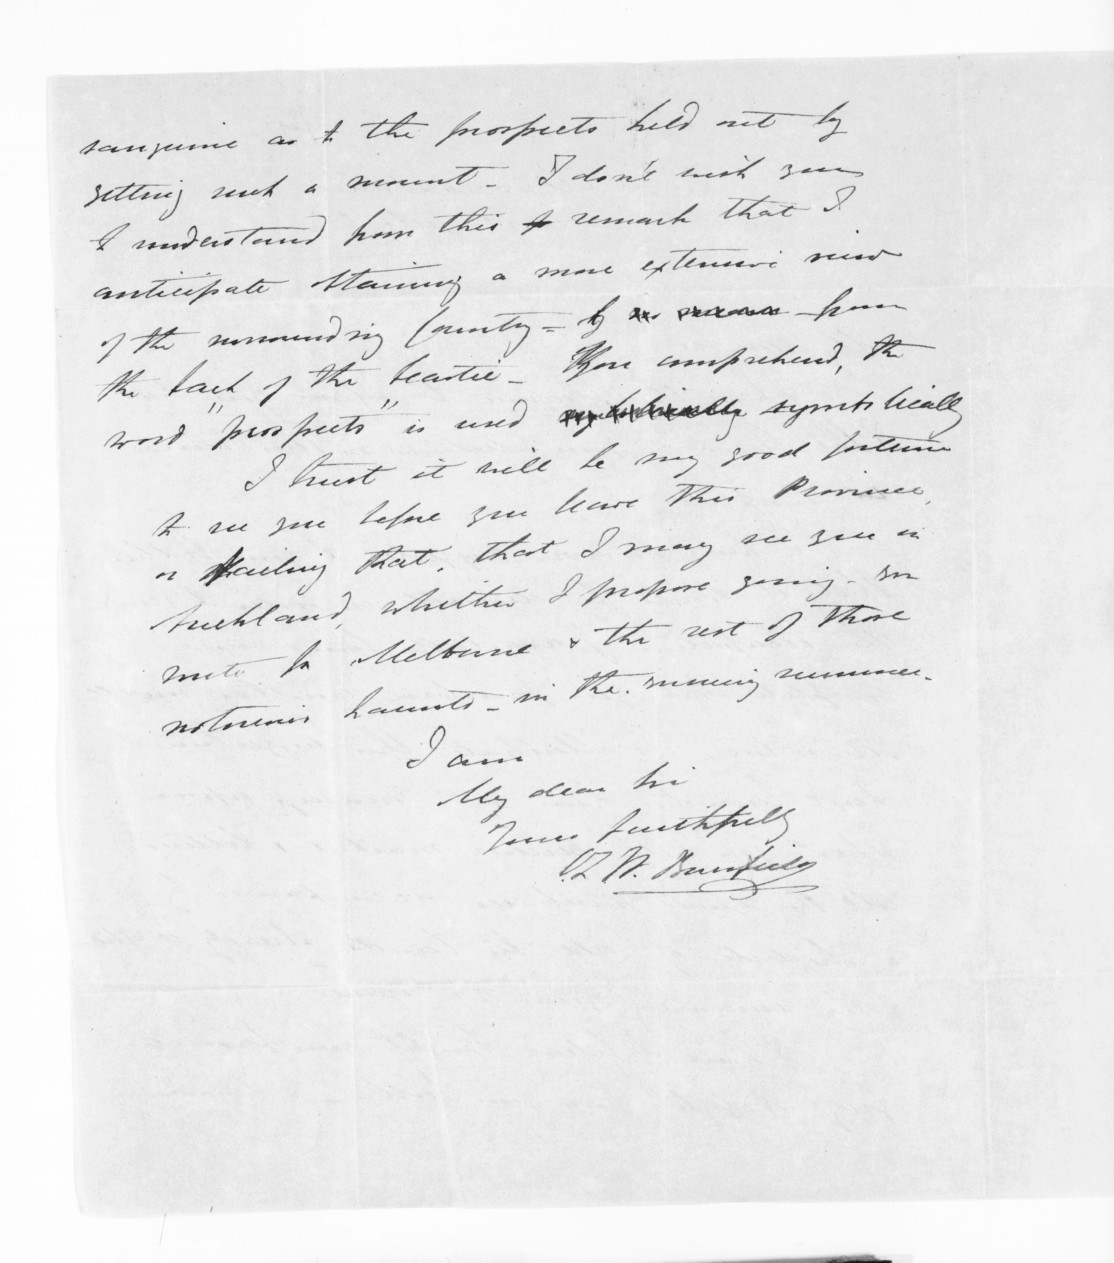 sanguine as to the prospects held out by
getting such a mount - I don't wish you
to understand from this remark that I
anticipate obtaining a more extensive view
of the surrounding Country - by from
the back of the beastie - You comprehend, the
word "prospects" is used symbolically
I trust it will be my good fortune
to see you before you leave this Province,
or failing that, that I may see you in
Auckland, whither I propose going - en
route for Melbourne & the rest of those
notorious haunts - in the coming summer -
I am
My dear Sir
Yours faithfully
W.